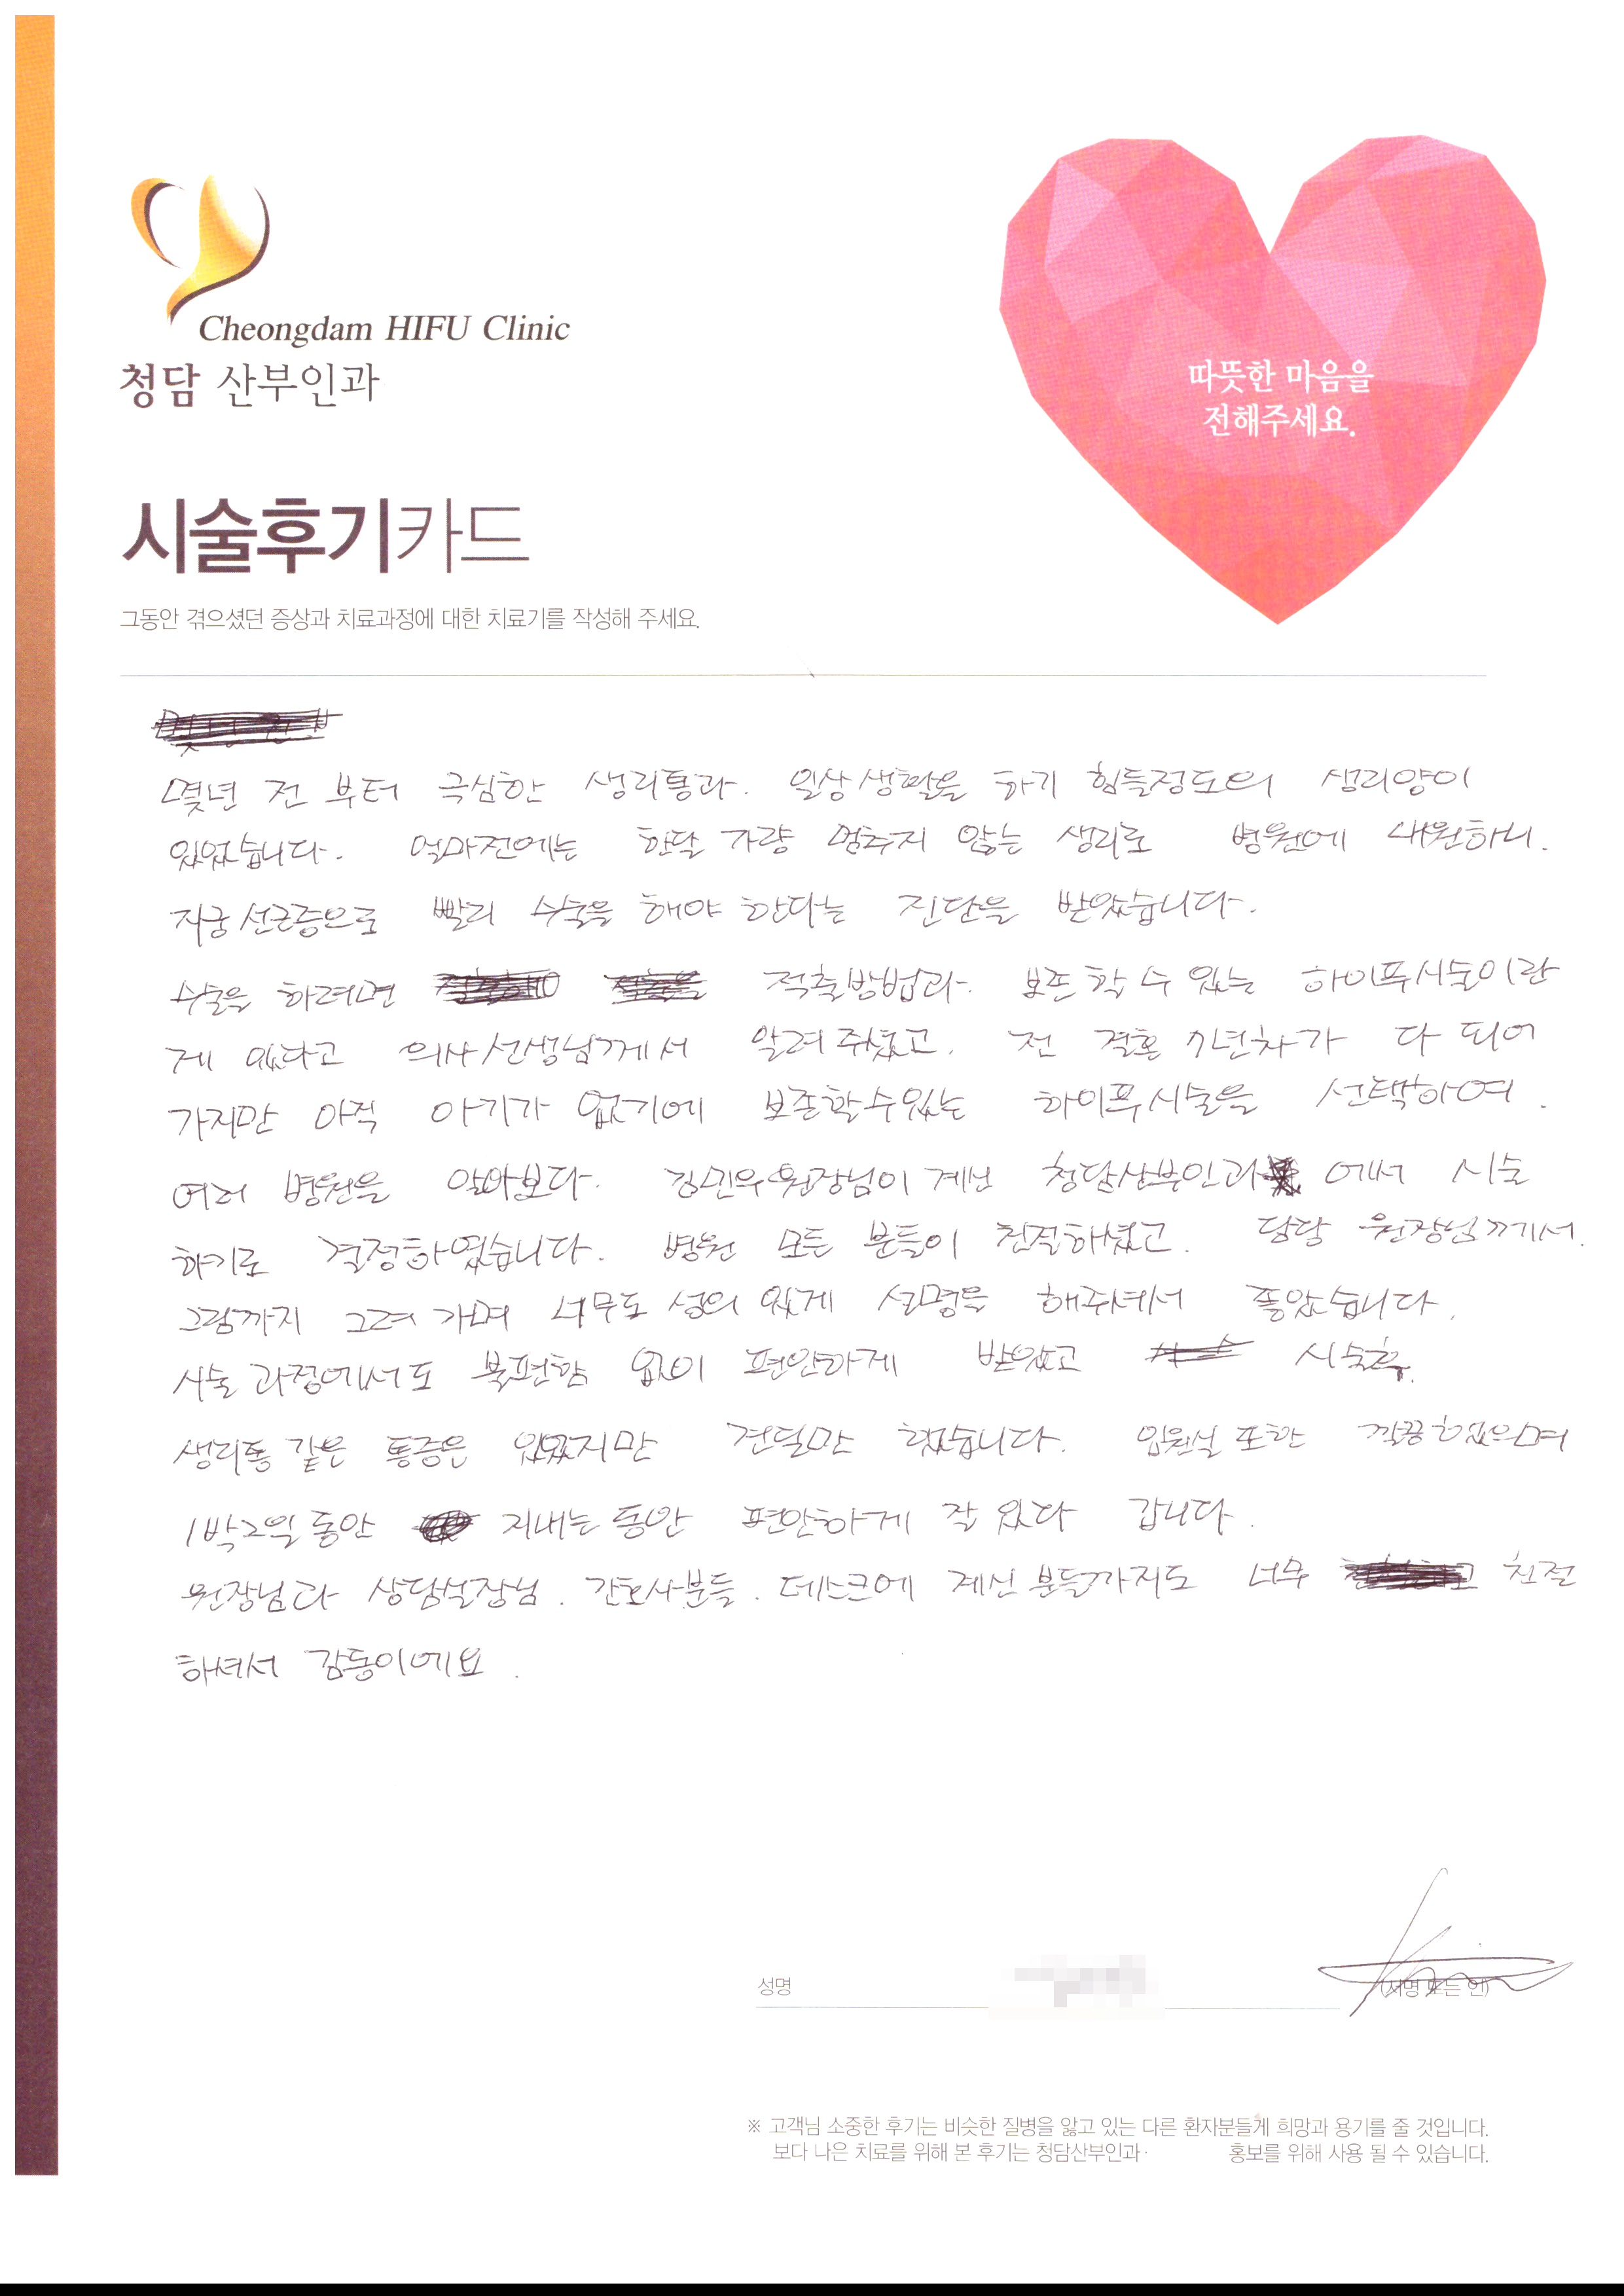 Cheongdam HIFU Clinic
청담 산부인과
따뜻한 마음을
전해주세요.
시술후기카드
그동안 겪으셨던 증상과 치료과정에 대한 치료기를 작성해 주세요.
몇년 전 부터 극심한 생리통과. 일상생활을 하기 힘들정도의 생리양이
있었습니다. 얼마전에는 한달 가량 멈추지 않는 생리로 병원에 내원하니.
자궁선근증으로 빨리 수술을 해야 한다는 진단을 받았습니다.
수술을 하려면 적출방법과. 보존 할 수 있는 하이푸시술이란
게 있다고 의사선생님께서 알려주셨고. 전 결혼 7년차가 다 되어
가지만 아직 아기가 없기에 보존할수있는 하이푸시술을 선택하여.
여러 병원을 알아보다. 김민우원장님이 계신 청담산부인과에서 시술
하기로 결정하였습니다. 병원 모든 분들이 친절하셨고. 담당 원장님께서.
그림까지 그려가며 너무도 성의 있게 설명을 해주셔서 좋았습니다.
시술 과정에서도 불편함 없이 편안하게 받았고 시술후.
생리통 같은 통증은 있었지만 견딜만 했습니다. 입원실 또한 깨끗했으며
1박2일 동안 지내는 동안 편안하게 잘 있다 갑니다.
원장님과 상담실장님. 간호사분들. 데스크에 계신 분들까지도 너무 친절
하셔서 감동이에요.
성명 (서명 또는 인)
※ 고객님 소중한 후기는 비슷한 질병을 앓고 있는 다른 환자분들게 희망과 용기를 줄 것입니다.
보다 나은 치료를 위해 본 후기는 청담산부인과· 홍보를 위해 사용 될 수 있습니다.